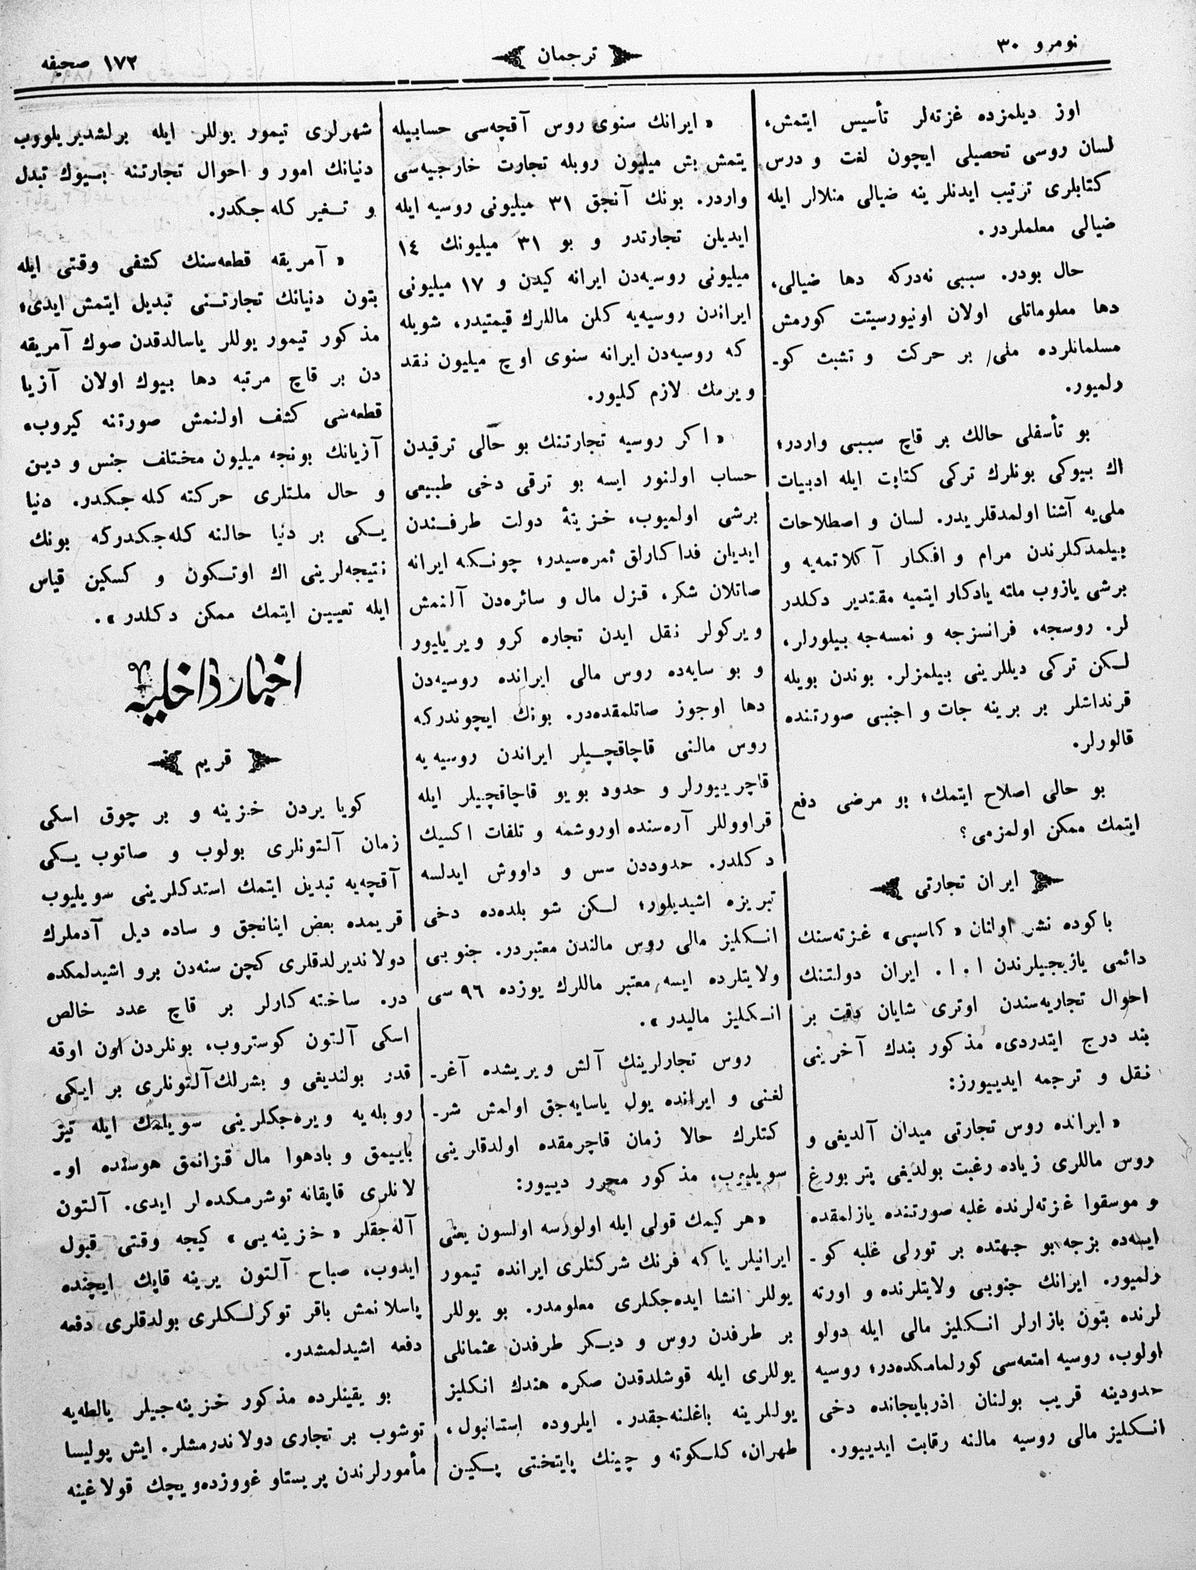 نومرو ٣٠
ترجمان
١٧٢ صحيفه
اوز ديلمزده غزته‌لر تأسيس ايتمش،
لسان روسى تحصيلى ايچون لغت و درس
كتابلرى ترتيب ايدنلرينه ضيالى منلالر ايله
ضيالى معلملردر.
حال بودر. سببى نه‌دركه دها ضيالى،
دها معلوماتلى اولان اونيورسيتت كورمش
مسلمانلرده ملى بر حركت و تشبث كو‌ـ
رلميور.
بو تأسفلى حالك بر قاچ سببى واردر؛
اك بيوكى بونلرك تركى كتابت ايله ادبيات
ملى‌يه آشنا اولمدقلريدر. لسان و اصطلاحات
بيلمدكلرندن مرام و افكار آكلاتمه‌يه و
برشى يازوب ملته يادكار ايتميه مقتدير دكلدر
لر. روسجه، فرانسزجه و نمسه‌جه بيلورلر،
لكن تركى ديللرينى بيلمزلر. بوندن بويله
قرنداشلر بر برينه جات و اجنبى صورتنده
قالورلر.
بو حالى اصلاح ايتمك؛ بو مرضى دفع
ايتمك ممكن اولمزمى؟
ايران تجارتى
باكوده نشر اولنان «كاسپى» غزته‌سنك
دائمى يازيجيلرندن ا. ا. ايران دولتنك
احوال تجاريه‌سندن اوترى شايان دقت بر
بند درج ايتدردى، مذكور بندك آخرينى
نقل و ترجمه ايدييورز:
«ايرانده روس تجارتى ميدان آلديغى و
روس ماللرى زياده رغبت بولديغى پتربورغ
و موسقوا غزته‌لرنده غلبه صورتنده يازلمقده
ايسه‌ده بزجه بو جهتده بر تورلى غلبه كو‌ـ
رلميور. ايرانك جنوبى ولايتلرنده و اورته
لرنده بتون بازارلر انكليز مالى ايله دولو
اولوب، روسيه امتعه‌سى كورلمامكده‌در؛ روسيه
حدودينه قريب بولنان اذربايجانده دخى
انكليز مالى روسيه مالنه رقابت ايدييور.
«ايرانك سنوى روس آقچه‌سى حسابيله
يتمش بش ميليون روبله تجارت خارجيه‌سى
واردر. بونك آنجق ٣١ ميليونى روسيه ايله
ايديلن تجارتدر و بو ٣١ ميليونك ١٤
ميليونى روسيه‌دن ايرانه كيدن و ١٧ ميليونى
ايراندن روسيه‌يه كلن ماللرك قيمتيدر، شويله
كه روسيه‌دن ايرانه سنوى اوچ ميليون نقد
ويرمك لازم كليور.
«اكر روسيه تجارتنك بو حالى ترقيدن
حساب اولنور ايسه بو ترقى دخى طبيعى
برشى اولميوب، خزينهٔ دولت طرفندن
ايديلن فداكارلق ثمره‌سيدر؛ چونكه ايرانه
صاتلان شكر، قزل مال و سائره‌دن آلنمش
ويركولر نقل ايدن تجاره كرو ويريليور
و بو سايه‌ده روس مالى ايرانده روسيه‌دن
دها اوجوز صاتلمقده‌در. بونك ايچوندركه
روس مالنى قاچاقچيلر ايراندن روسيه‌يه
قاچرييورلر و حدود بويو قاچاقچيلر ايله
قراووللر آره‌سنده اوروشمه و تلفات اكسيك
دكلدر. حدوددن سس و داووش ايدلسه
تبريزه اشيديلور؛ لكن شو بلده‌ده دخى
انكليز مالى روس مالندن معتبردر. جنوبى
ولايتلرده ايسه، معتبر ماللرك يوزده ٩٦ سى
انكليز ماليدر».
روس تجارلرينك آلش ويريشده آغر‌ـ
لغنى و ايرانده يول ياسايه‌جق اولمش شر‌ـ
كتلرك حالا زمان قاچرمقده اولدقلرينى
سويليوب، مذكور محرر دييور:
«هر كيمك قولى ايله اولورسه اولسون يعنى
ايرانيلر ياكه فرنك شركتلرى ايرانده تيمور
يوللر انشا ايده‌جكلرى معلومدر. بو يوللر
بر طرفدن روس و ديكر طرفدن عثمانلى
يوللرى ايله قوشلدقدن صكره هندك انكليز
يوللرينه باغلنه‌جقدر. ايلروده استانبول،
طهران، كلكوته و چينك پايتختى پكين
شهرلرى تيمور يوللر ايله برلشديريلووب
دنيانك امور و احوال تجارتنه بيوك تبدل
و تغير كله‌جكدر.
«آمريقه قطعه‌سنك كشفى وقتى ايله
بتون دنيانك تجارتنى تبديل ايتمش ايدى؛
مذكور تيمور يوللر ياسالدقدن صوك آمريقه
دن بر قاچ مرتبه دها بيوك اولان آزيا
قطعه‌سى كشف اولنمش صورتنه كيروب،
آزيانك بونجه ميليون مختلف جنس و دين
و حال ملتلرى حركته كله‌جكدر. دنيا
يكى بر دنيا حالنه كله‌جكدركه بونك
نتيجه‌لرينى اك اوتكون و كسكين قياس
ايله تعيين ايتمك ممكن دكلدر».
اخبار داخليه
قريم
كويا يردن خزينه و بر چوق اسكى
زمان آلتونلرى بولوب و صاتوب يكى
آقچه‌يه تبديل ايتمك استدكلرينى سويليوب
قريمده بعض اينانجق و ساده ديل آدملرك
دولانديرلدقلرى كچن سنه‌دن برو اشيدلمكده
در. ساخته‌كارلر بر قاچ عدد خالص
اسكى آلتون كوستروب، بونلردن اون اوقه
قدر بولنديغى و بشرلك آلتونلرى بر ايكى
روبله‌يه ويره‌جكلرينى سويلمك ايله تيز
باييمق و بادهوا مال قزانمق هوسنده او‌ـ
لانلرى قاپقانه توشرمكده‌لر ايدى. آلتون
آله‌جقلر «خزينه‌يى» كيجه وقتى قبول
ايدوب، صباح آلتون يرينه قاپك ايچنده
پاسلانمش باقر توكرلكلرى بولدقلرى دفعه
دفعه اشيدلمشدر.
بو يقينلرده مذكور خزينه‌جيلر يالطه‌يه
توشوب بر تجارى دولاندرمشلر. ايش پوليسا
مأمورلرندن پريستاو غووزده‌ويچك قولاغينه